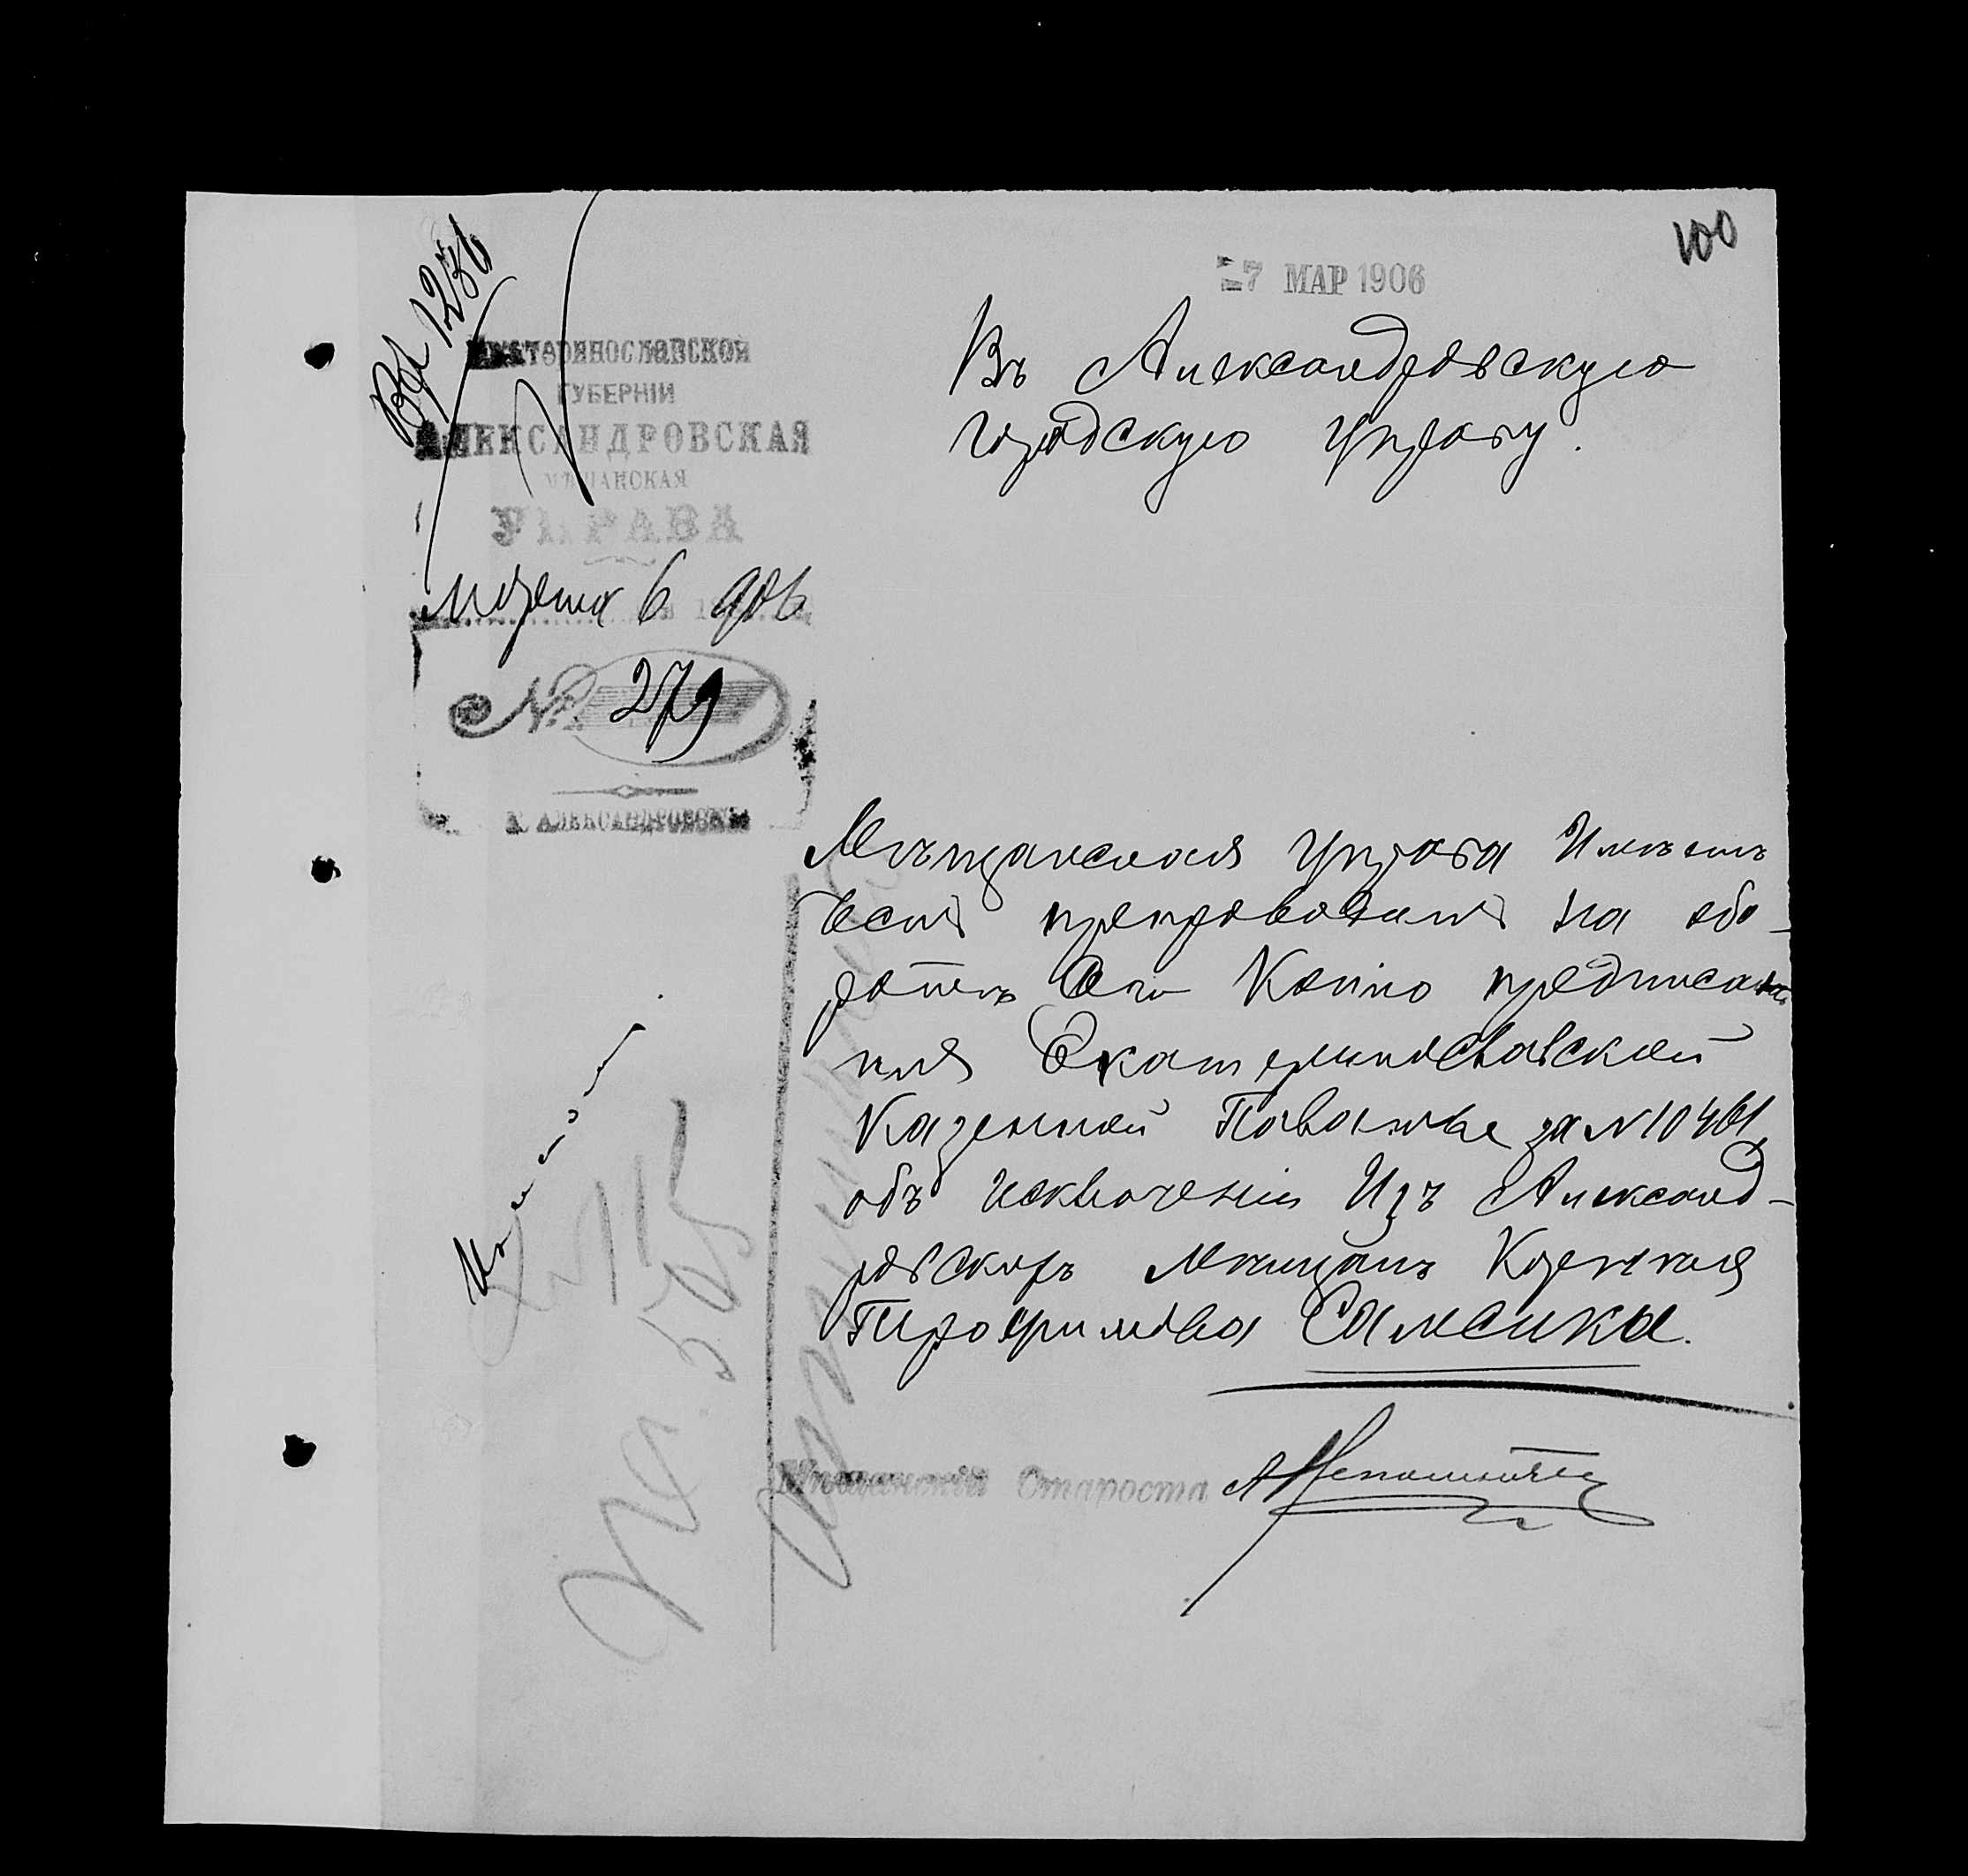 100
Вх 1236
7 МАР 1906
Екатеринославской
ГУБЕРНІИ
АЛЕКСАНДРОВСКАЯ
МѢЩАНСКАЯ
УПРАВА
Марта 6 906
№ 279
Г. АЛЕКСАНДРОВСКЪ
Въ Александровскую
городскую управу.
Мѣщанская управа Имѣетъ
честь препроводить на обо-
ротѣ Сего Копію предписа
нія Екатеринославской
Казенной Полаты за № 10461
объ исключеніи Изъ Александ-
ровскихъ мещанъ
Трофимова Самсика.
Мѣщанскій Староста